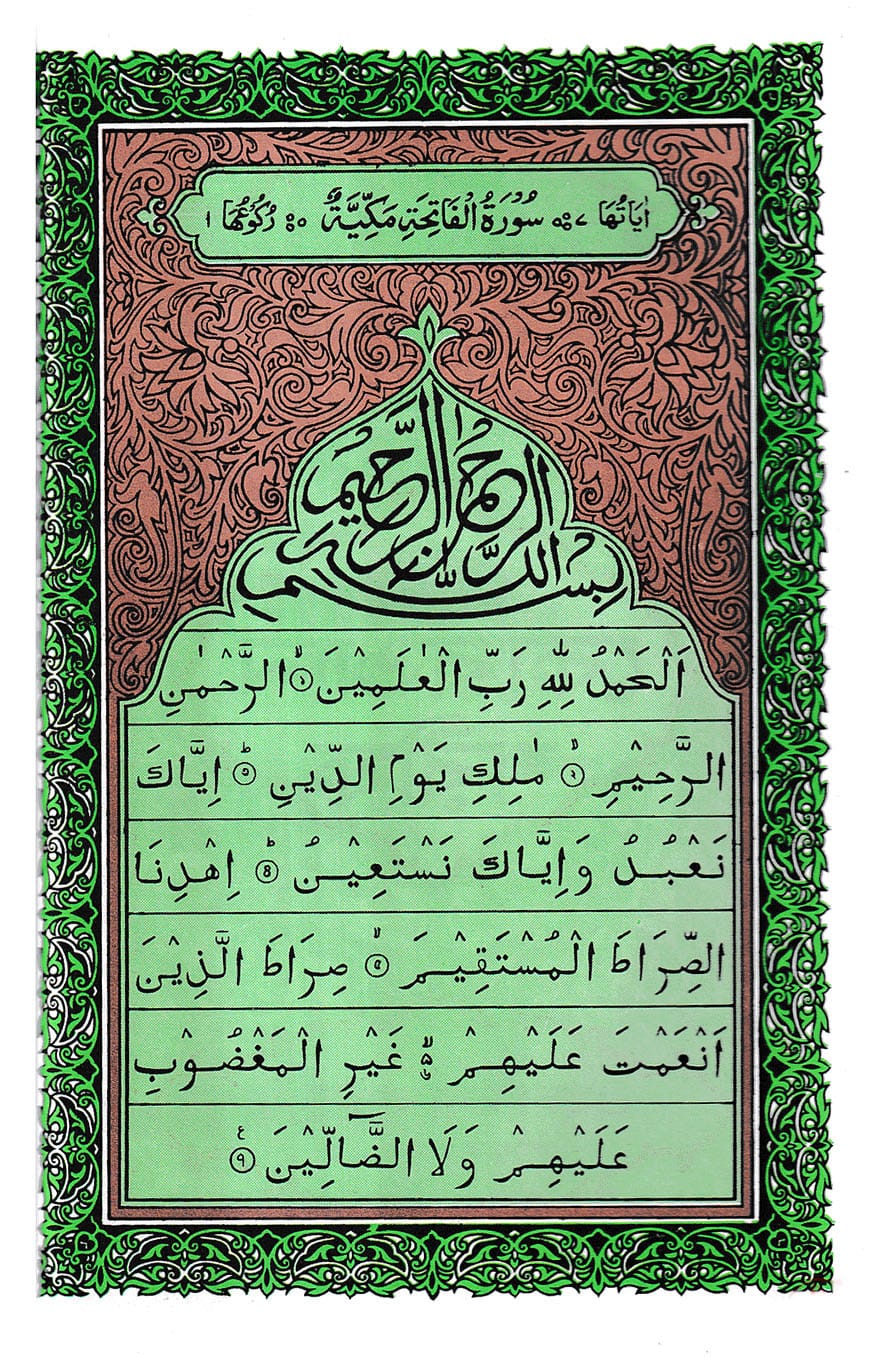 اٰیَاتُهَا ٧ سُوْرَةُ الْفَاتِحَةِ مَكِّیَّةٌ ٥ رُكُوْعُهَا ١
بِسْمِ اللّٰهِ الرَّحْمٰنِ الرَّحِیْمِ
اَلْحَمْدُ لِلّٰهِ رَبِّ الْعٰلَمِیْنَ ۙ‏﴿۱﴾ الرَّحْمٰنِ
الرَّحِیْمِ ۙ‏﴿۲﴾ مٰلِكِ یَوْمِ الدِّیْنِ ؕ‏﴿۳﴾ اِیَّاكَ
نَعْبُدُ وَاِیَّاكَ نَسْتَعِیْنُ ؕ‏﴿۴﴾ اِهْدِنَا
الصِّرَاطَ الْمُسْتَقِیْمَ ۙ‏﴿۵﴾ صِرَاطَ الَّذِیْنَ
اَنْعَمْتَ عَلَیْهِمْ ۙ۬ۦ غَیْرِ الْمَغْضُوْبِ
عَلَیْهِمْ وَلَا الضَّآلِّیْنَ ﴿۹﴾ ع